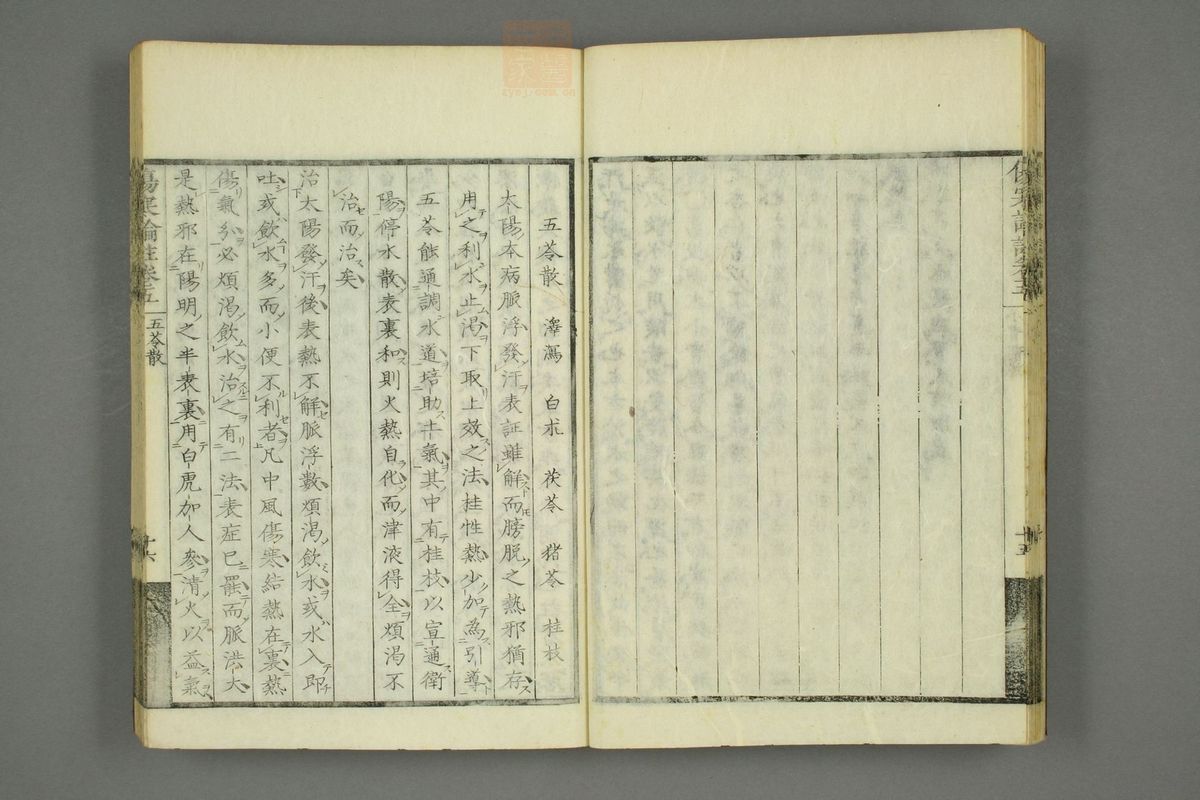 十五
五苓散 澤瀉 白朮 茯苓 猪苓 桂枝
太陽本病脈浮發汗表証雖解而膀脱之熱邪猶存
用之利水止渇下取上效之法桂性熱少加為引導
五苓能通調水道培助土氣其中有桂枝以宣通衛
陽停水散表裏和則火熱自化而津液得全煩渇不
治而治矣
治太陽發汗後表熱不解脈浮數煩渇飲水或水入即
吐或飲水多而小便不利者凡中風傷寒結熱在裏熱
傷氣分必煩渇飲水治之有二法表症已罷而脈洪大
是熱邪在陽明之半表裏用白虎加人參清火以益氣
傷寒論註卷五
五苓散
十六